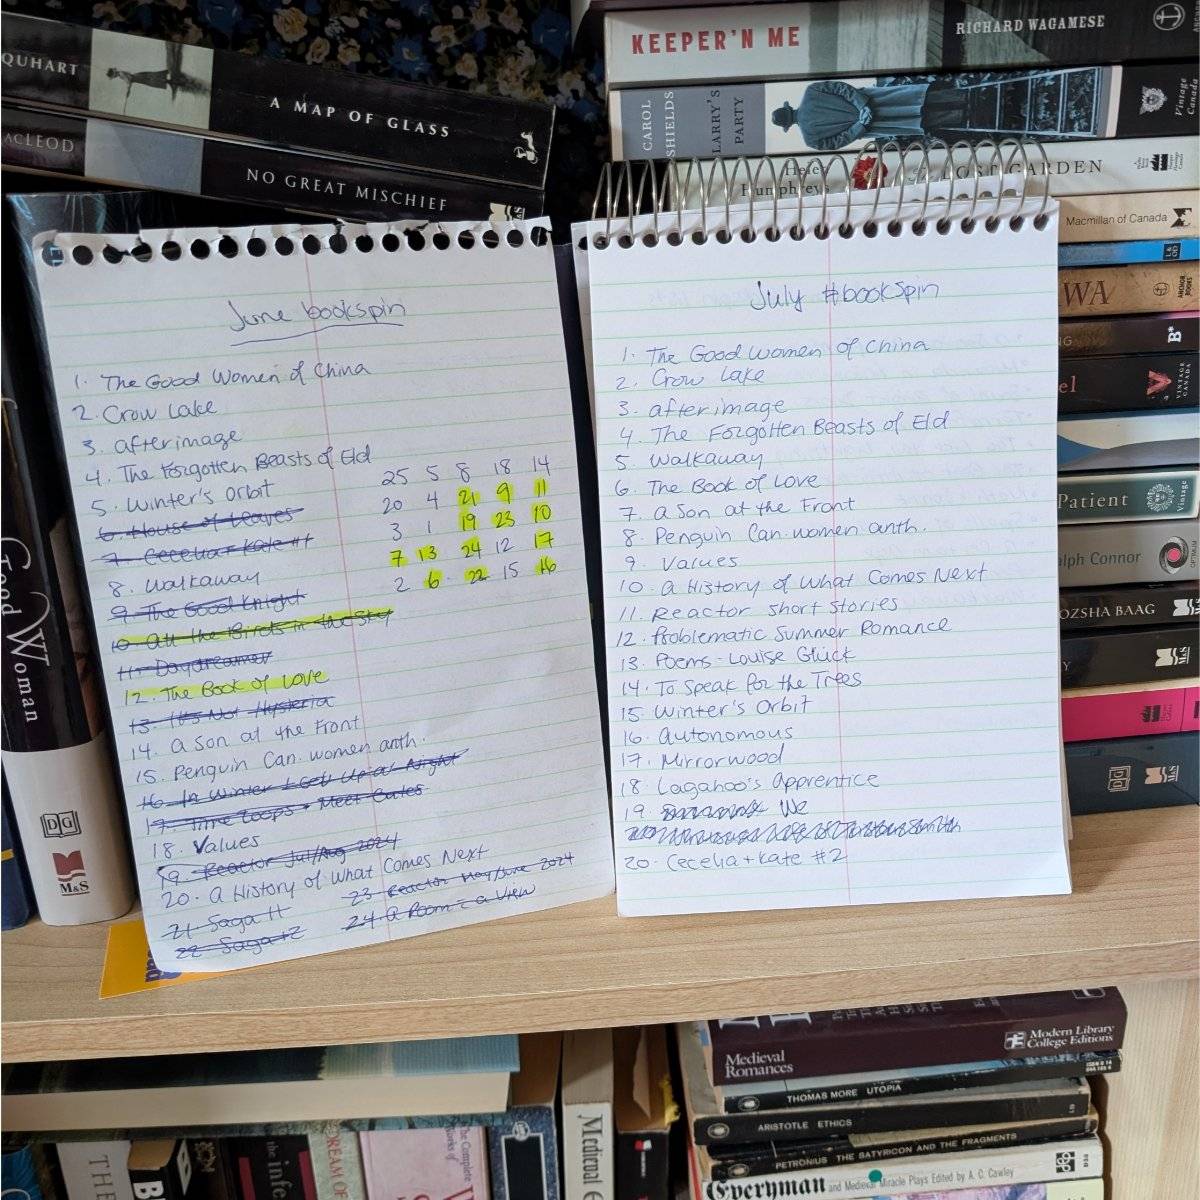 QUHART
A MAP OF GLASS
ACLEOD
NO GREAT MISCHIEF
M&S
KEEPER'N ME
RICHARD WAGAMESE
CAROL SHIELDS
LARRY'S PARTY
Vintage Canada
Helen Humphreys
LOST GARDEN
Macmillan of Canada
L&OD
WA
ANCHOR BOOKS
NG
B*
el
VINTAGE CANADA
Patient
Vintage
alph Connor
OPTIMUM
OZSHA BAAG
M&S
Y
M&S
DG
M&S
Good Woman
DG
M&S
June bookspin
1. The Good Women of China
2. Crow Lake
3. afterimage
4. The Forgotten Beasts of Eld
5. Winter's Orbit
6. House of Leaves
7. Cecelia + Kate #1
8. Walkaway
9. The Good Knight
10. All the Birds in the Sky
11. Daydreamer
12. The Book of Love
13. It's Not Hysteria
14. a Son at the Front
15. Penguin Can. women anth.
16. In Winter I Get Up at Night
17. Time Loops + Meet Cutes
18. Values
19. Reactor Jul/Aug 2024
20. a History of What Comes Next
21. Saga 11
22. Saga 12
23. Reactor May/June 2024
24. a Room = a View
25 5 8 18 14
20 4 21 9 11
3 1 19 23 10
7 13 24 12 17
2 6 22 15 16
July #bookspin
1. The Good Women of China
2. Crow Lake
3. afterimage
4. The Forgotten Beasts of Eld
5. Walkaway
6. The Book of Love
7. a Son at the Front
8. Penguin Can. women anth.
9. Values
10. a History of What Comes Next
11. Reactor short stories
12. Problematic Summer Romance
13. Poems - Louise Glück
14. To Speak for the Trees
15. Winter's Orbit
16. autonomous
17. Mirrorwood
18. Lagahoo's Apprentice
19 We
20. Cecelia + Kate #2
Medieval Romances
Modern Library College Editions
THOMAS MORE UTOPIA
ARISTOTLE ETHICS
PETRONIUS THE SATYRICON AND THE FRAGMENTS
Everyman and Medieval Miracle Plays Edited by A. C. Cawley
THE
the inf
DREAM OF
The Complete Works of
Medieval